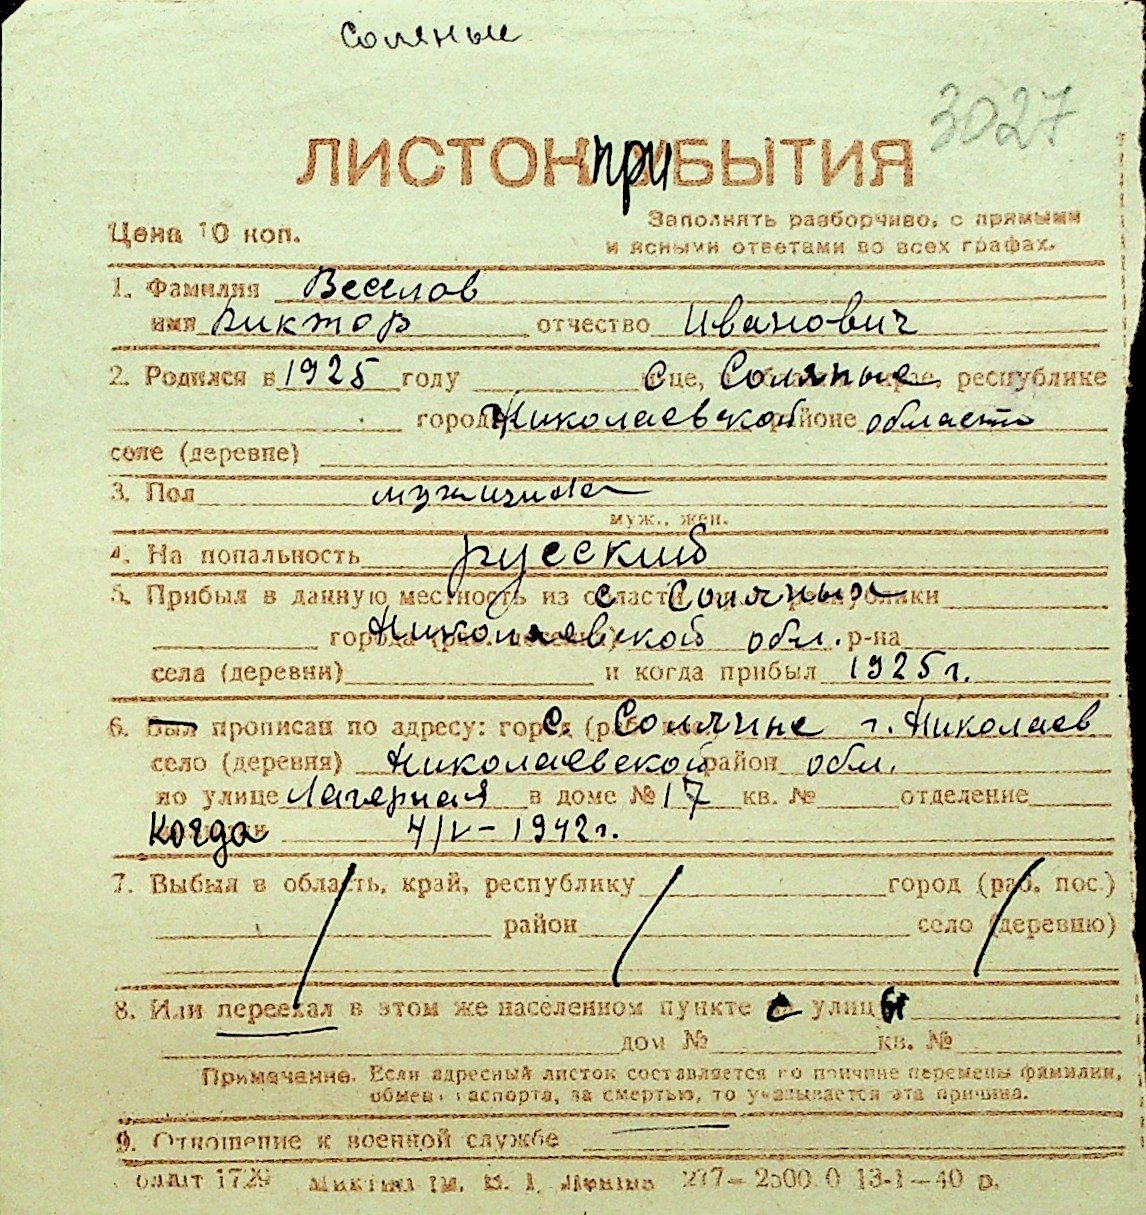 Соляные
3027
ЛИСТОК ПРИБЫТИЯ
Цена 10 коп.
Заполнять разборчиво, с прямыми
и ясными ответами во всех графах.
1. Фамилия Веселов
имя Виктор отчество Иванович
2. Родился в 1925 году с Соляные республике
города Николаевской районе области
селе (деревне)
3. Пол мужчина
муж., жен.
4. На попальность русский
5. Прибыл в данную местность из с области Соляных республики
города Николаевской обл. р-на
села (деревни) и когда прибыл 1925 г.
6. Был прописан по адресу: город с. (раб. Соляние г. Николаев
село (деревня) Николаевской район обл.
по улице Лагерная в доме № 17 кв. № отделение
Когда 4/V - 1942 г.
7. Выбыл в область, край, республику город (раб. пос.)
район село (деревню)
8. Или переехал в этом же населенном пункте с улицы
дом № кв. №
Примечание. Если адресный листок составляется по причине перемены фамилии,
обмена паспорта, за смертью, то указывается эта причина.
9. Отношение к военной службе
1729 277— 2500.0 13-1—40 р.